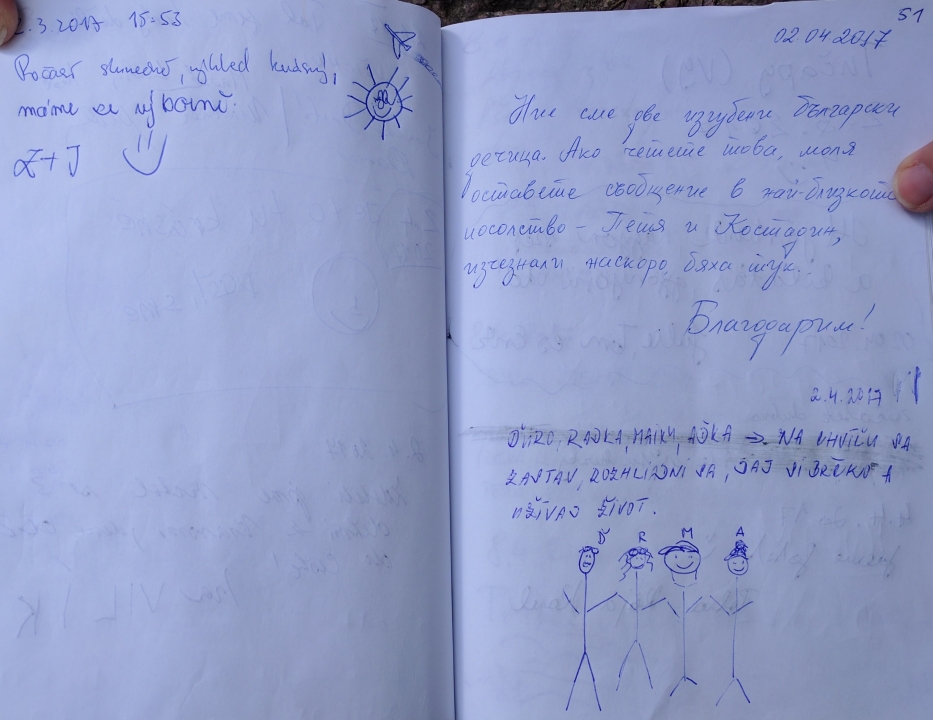 .3.2017 15:53
Počasí slunečno, výhled krásný,
máme se výborně.
Z+J
51
02 04 2017
Ние сме две изгубени български
дечица. Ако четете това, моля
оставете съобщение в най-близкото
посолство - Петя и Костадин,
изчезнали наскоро, бяха тук.
Благодарим!
2.4.2017
ĎURO, RADKA, MAIKY, AĎKA → NA CHVÍĽU SA
ZASTAV, ROZHLIADNI SA, DAJ SI A
UŽÍVAJ ŽIVOT.
Ď R M A